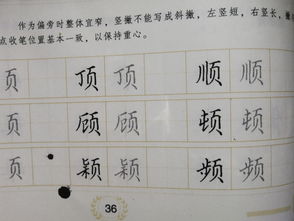 作为偏旁时整体宜窄，竖撇不能写成斜撇，左竖短，右竖长，撇
点收笔位置基本一致，以保持重心。
页 顶 顶 顺 顺
页 顾 顾 顿 顿
页 颖 颖 频 频
36